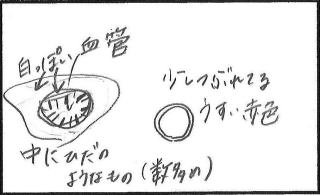 白っぽい
血管
中にひだの
ようなもの(数多め)
少しつぶれてる
うすい赤色